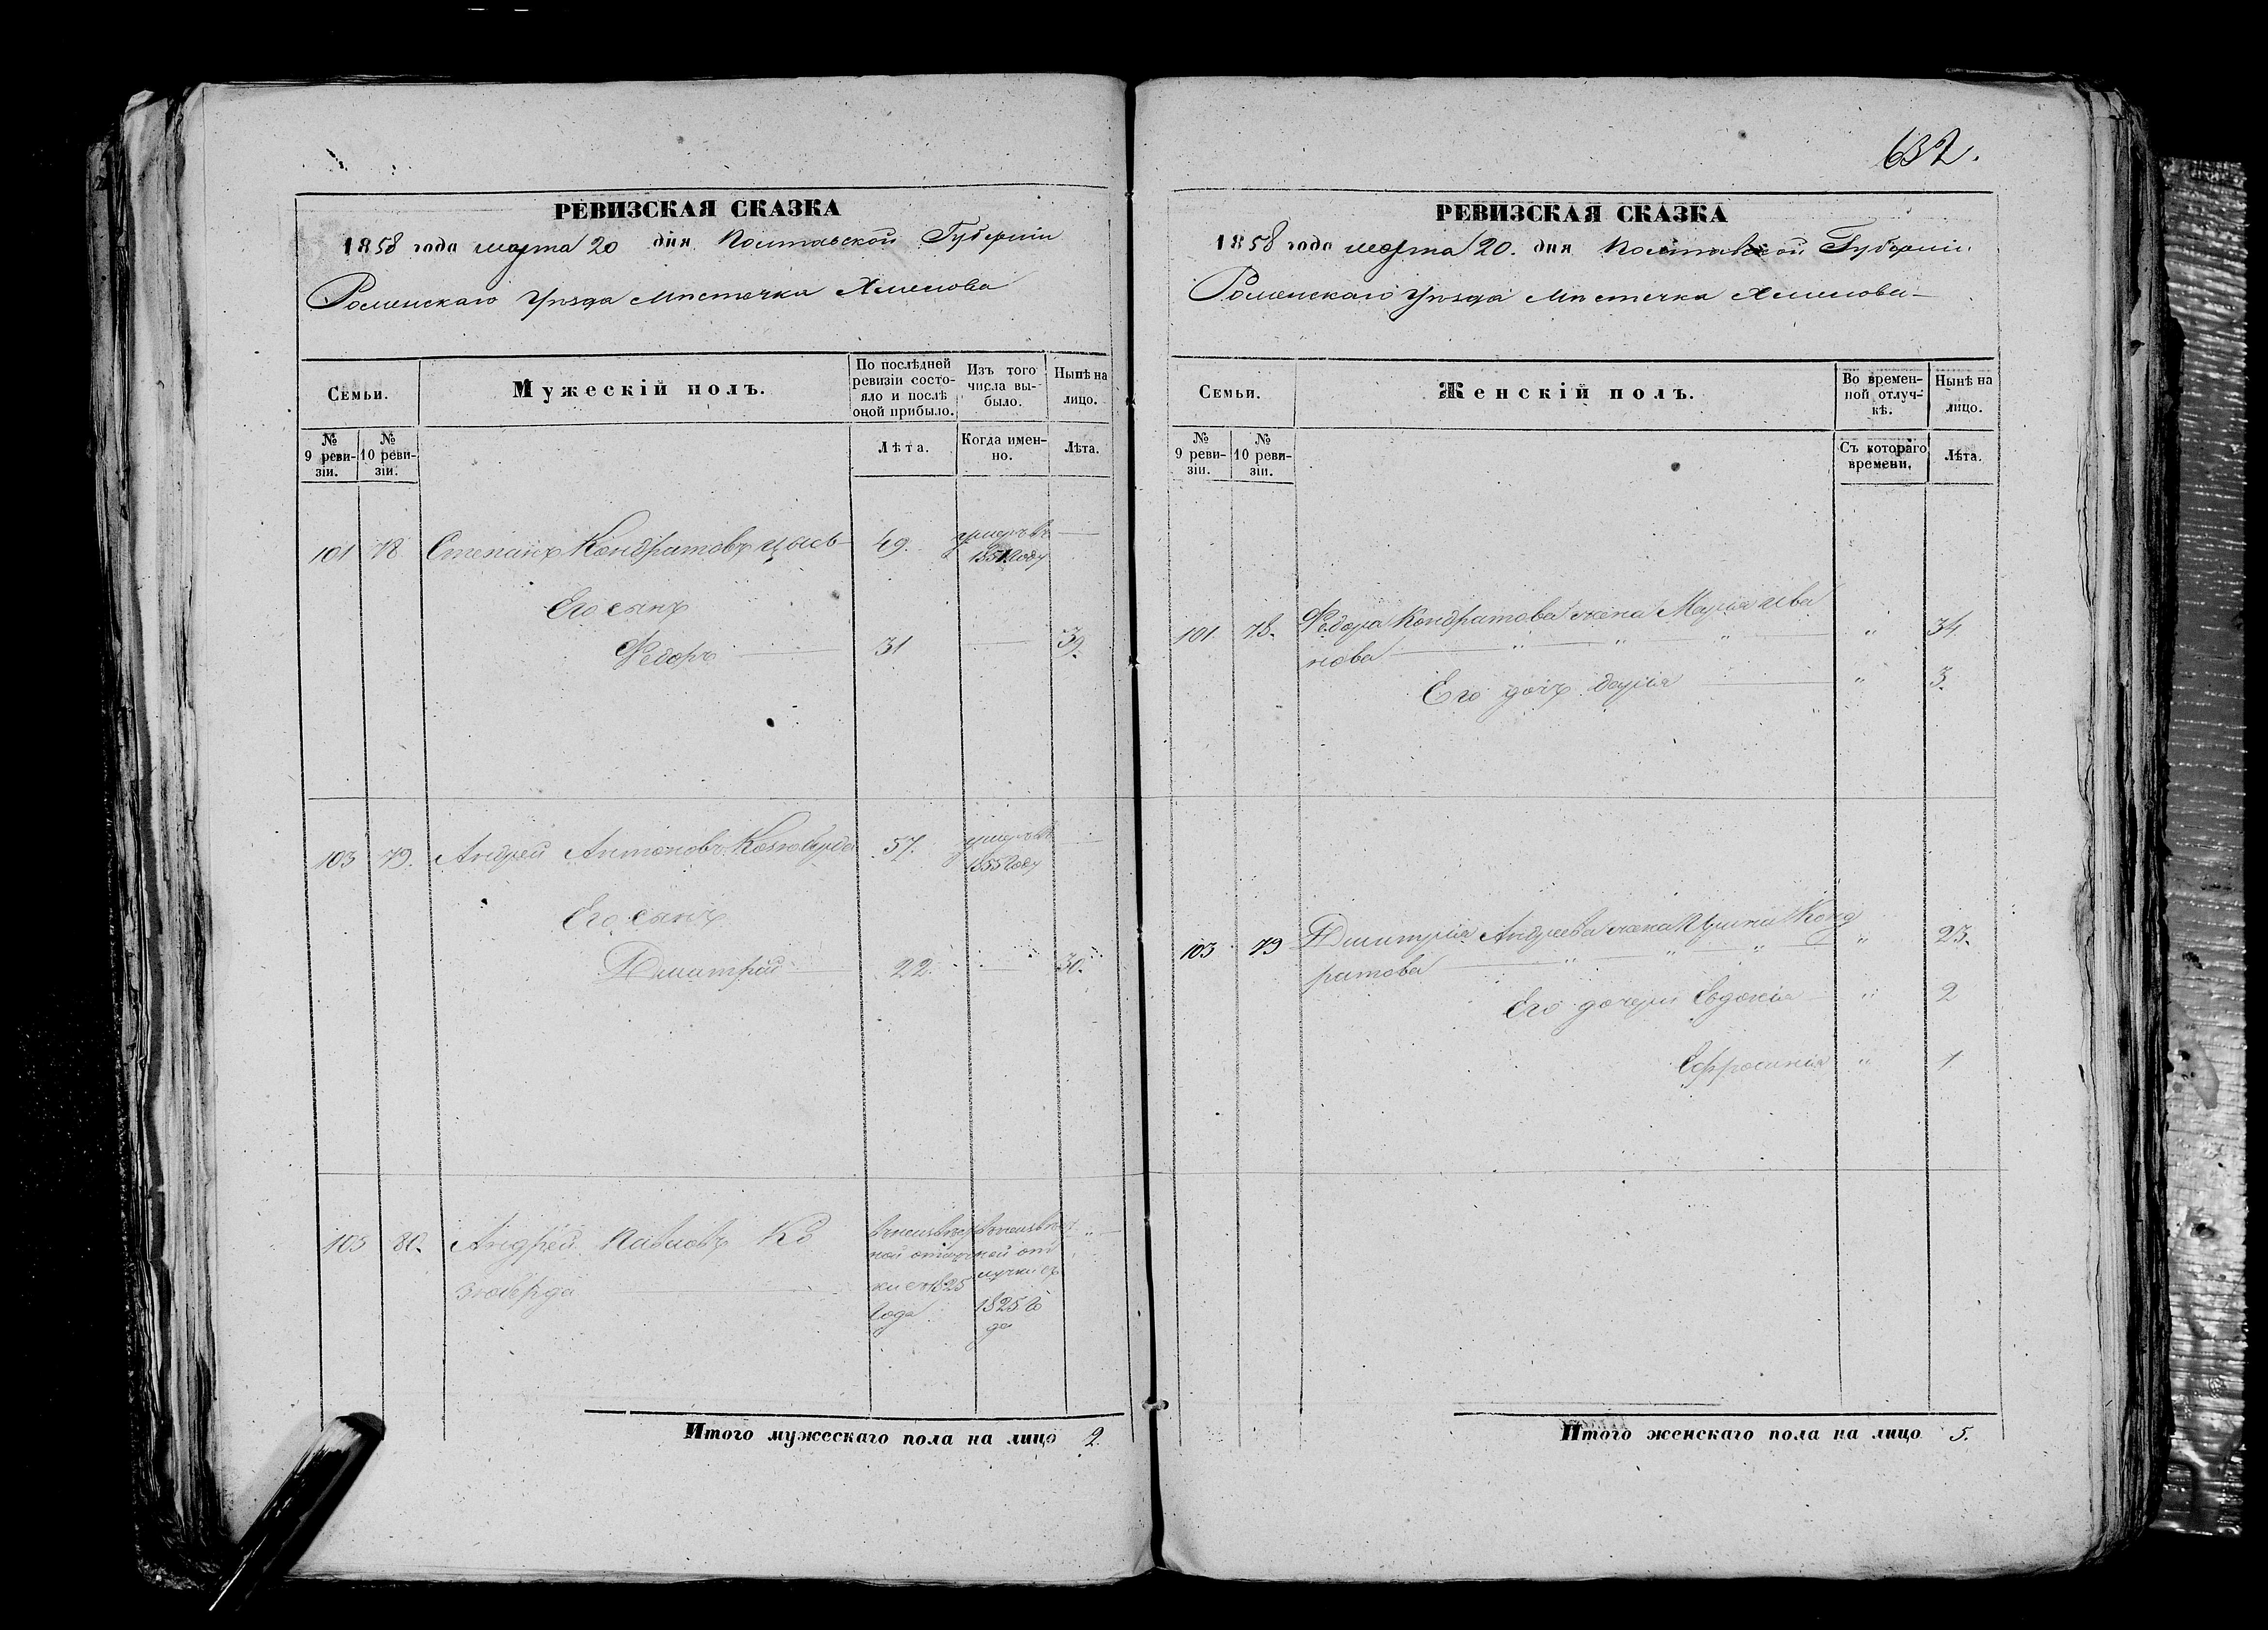 РЕВИЗСКАЯ СКАЗКА
1858 года марта 20 дня Полтавской Губерніи
Роменскаго Уѣзда Мѣстечка Хмелова
Семьи.
Мужескій полъ.
По послѣдней ревизіи состояло и послѣ оной прибыло.
Изъ того числа выбыло.
Нынѣ на лицо.
№ 9 ревизіи.
№ 10 ревизіи.
Лѣта.
Когда именно.
Лѣта.
101 78 Степанъ Кондратовъ Цысь 49. умеръ въ
1851 году
Его сынъ
Федоръ 31 39.
103 79. Андрей Антоновъ Козюберда 57. умеръ въ
1855 году
Его сынъ
Дмитрій 22. 30.
105 80. Андрей Павловъ Ко
зюберда
въ неизвѣст
ной отлуч
ки съ 1825
года
въ неизвѣст
ной от
лучки съ
1825 го
да
Итого мужескаго пола на лицо 2.
632.
РЕВИЗСКАЯ СКАЗКА
1858 года марта 20. дня Полтавской Губерніи
Роменскаго Уѣзда Мѣстечка Хмелова
Семьи.
Женскій полъ.
Во временной отлучкѣ.
Нынѣ на лицо.
№ 9 ревизіи.
№ 10 ревизіи.
Съ котораго времени.
Лѣта.
101 78. Федора Кондратова жена Марія Ива
нова " " " " 34.
Его дочь Дарія " 3.
103 79 Дмитрія Андреева жена Ирина Конд
ратова " " " " 23.
Его дочери Евдокія " 2
Ефросинія " 1
Итого женскаго пола на лицо 5.